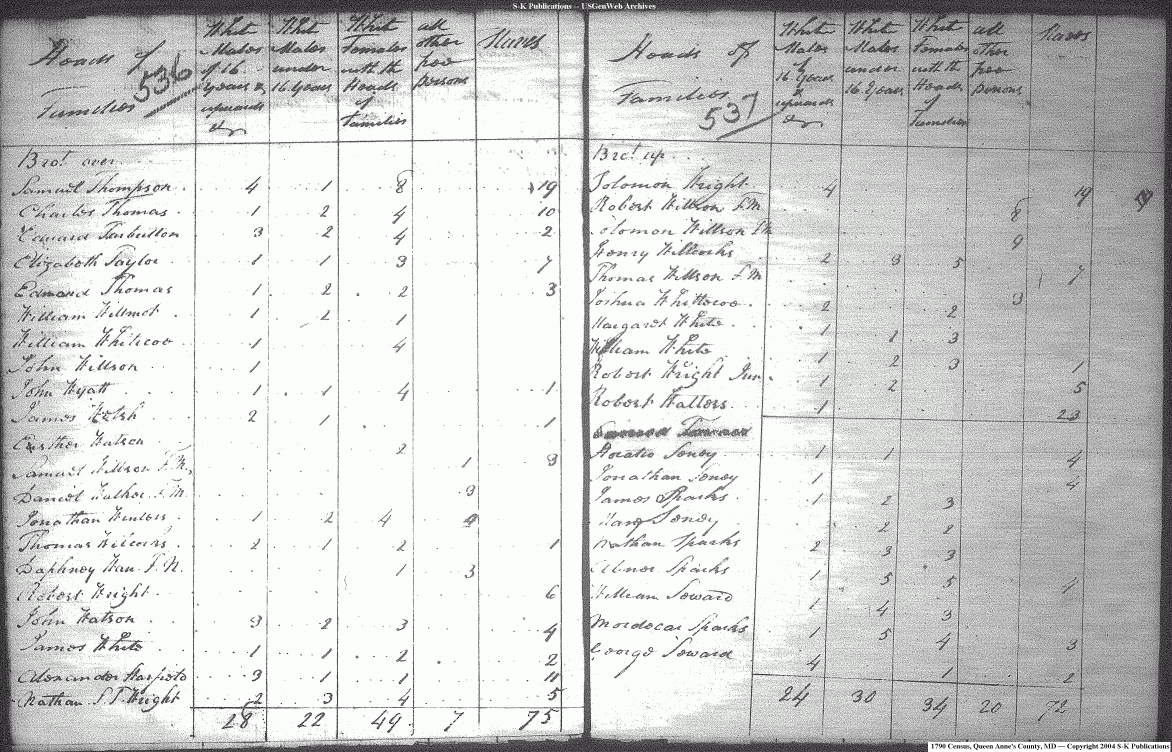 S-K Publications -- USGenWeb Archives
Heads of Families 536
White Males of 16 Years & upwards &c
White Males under 16 Years
White Females with the Heads of Families
all other free persons
Slaves
Brot. over
Samuel Thompson 4 1 8 19
Charles Thomas 1 2 4 10
Edward Tarbutton 3 2 4 2
Elizabeth Taylor 1 1 3 7
Edmand Thomas 1 2 2 3
William Willmot 1 2 1
William Whiticoo 1 4
John Willson 1
John Wyatt 1 1 4 1
James Welsh 2 1 1
Easther Watson 2
Samuel Willson F.N. 1 3
Daniel Walker F.M. 3
Jonathan Winters 1 2 4
Thomas 2 1 2 1
Daphney F.N. 1 3
Robert Wright 6
John Watson 3 2 3 4
James White 1 1 2 2
Alexander 3 1 1 11
Nathan S.T. Wright 2 3 4 5
28 22 49 7 75
Heads of Families 537
White Males of 16 Years & upwards &c
White Males under 16 Years
White Females with the Heads of Families
all other free persons
Slaves
Brot. up
Solomon Wright 4 19
Robert Willson F.M. 8
Solomon Willson 9
Henry Willcocks 2 3 5 7
Thomas Willson F.M. 3
Joshua Whittocoo 2 2
Margaret White 1 1 3
William White 1 2 3 1
Robert Wright Jun. 1 2 5
Robert Walters 1 23
Horatio Soney 1 1 4
Jonathan Soney 1 4
James Sparks 1 2 3
Mary Soney 2 2
Nathan Sparks 2 3 3
Abner Sparks 1 5 5 4
William Soward 1 4 3
Mordecai Sparks 1 5 4 3
George Soward 4 1 2
24 30 34 20 72
1790 Census, Queen Anne's County, MD — Copyright 2004 S-K Publications